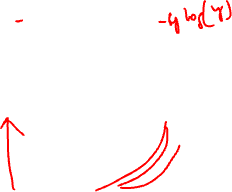 - -y log(y)